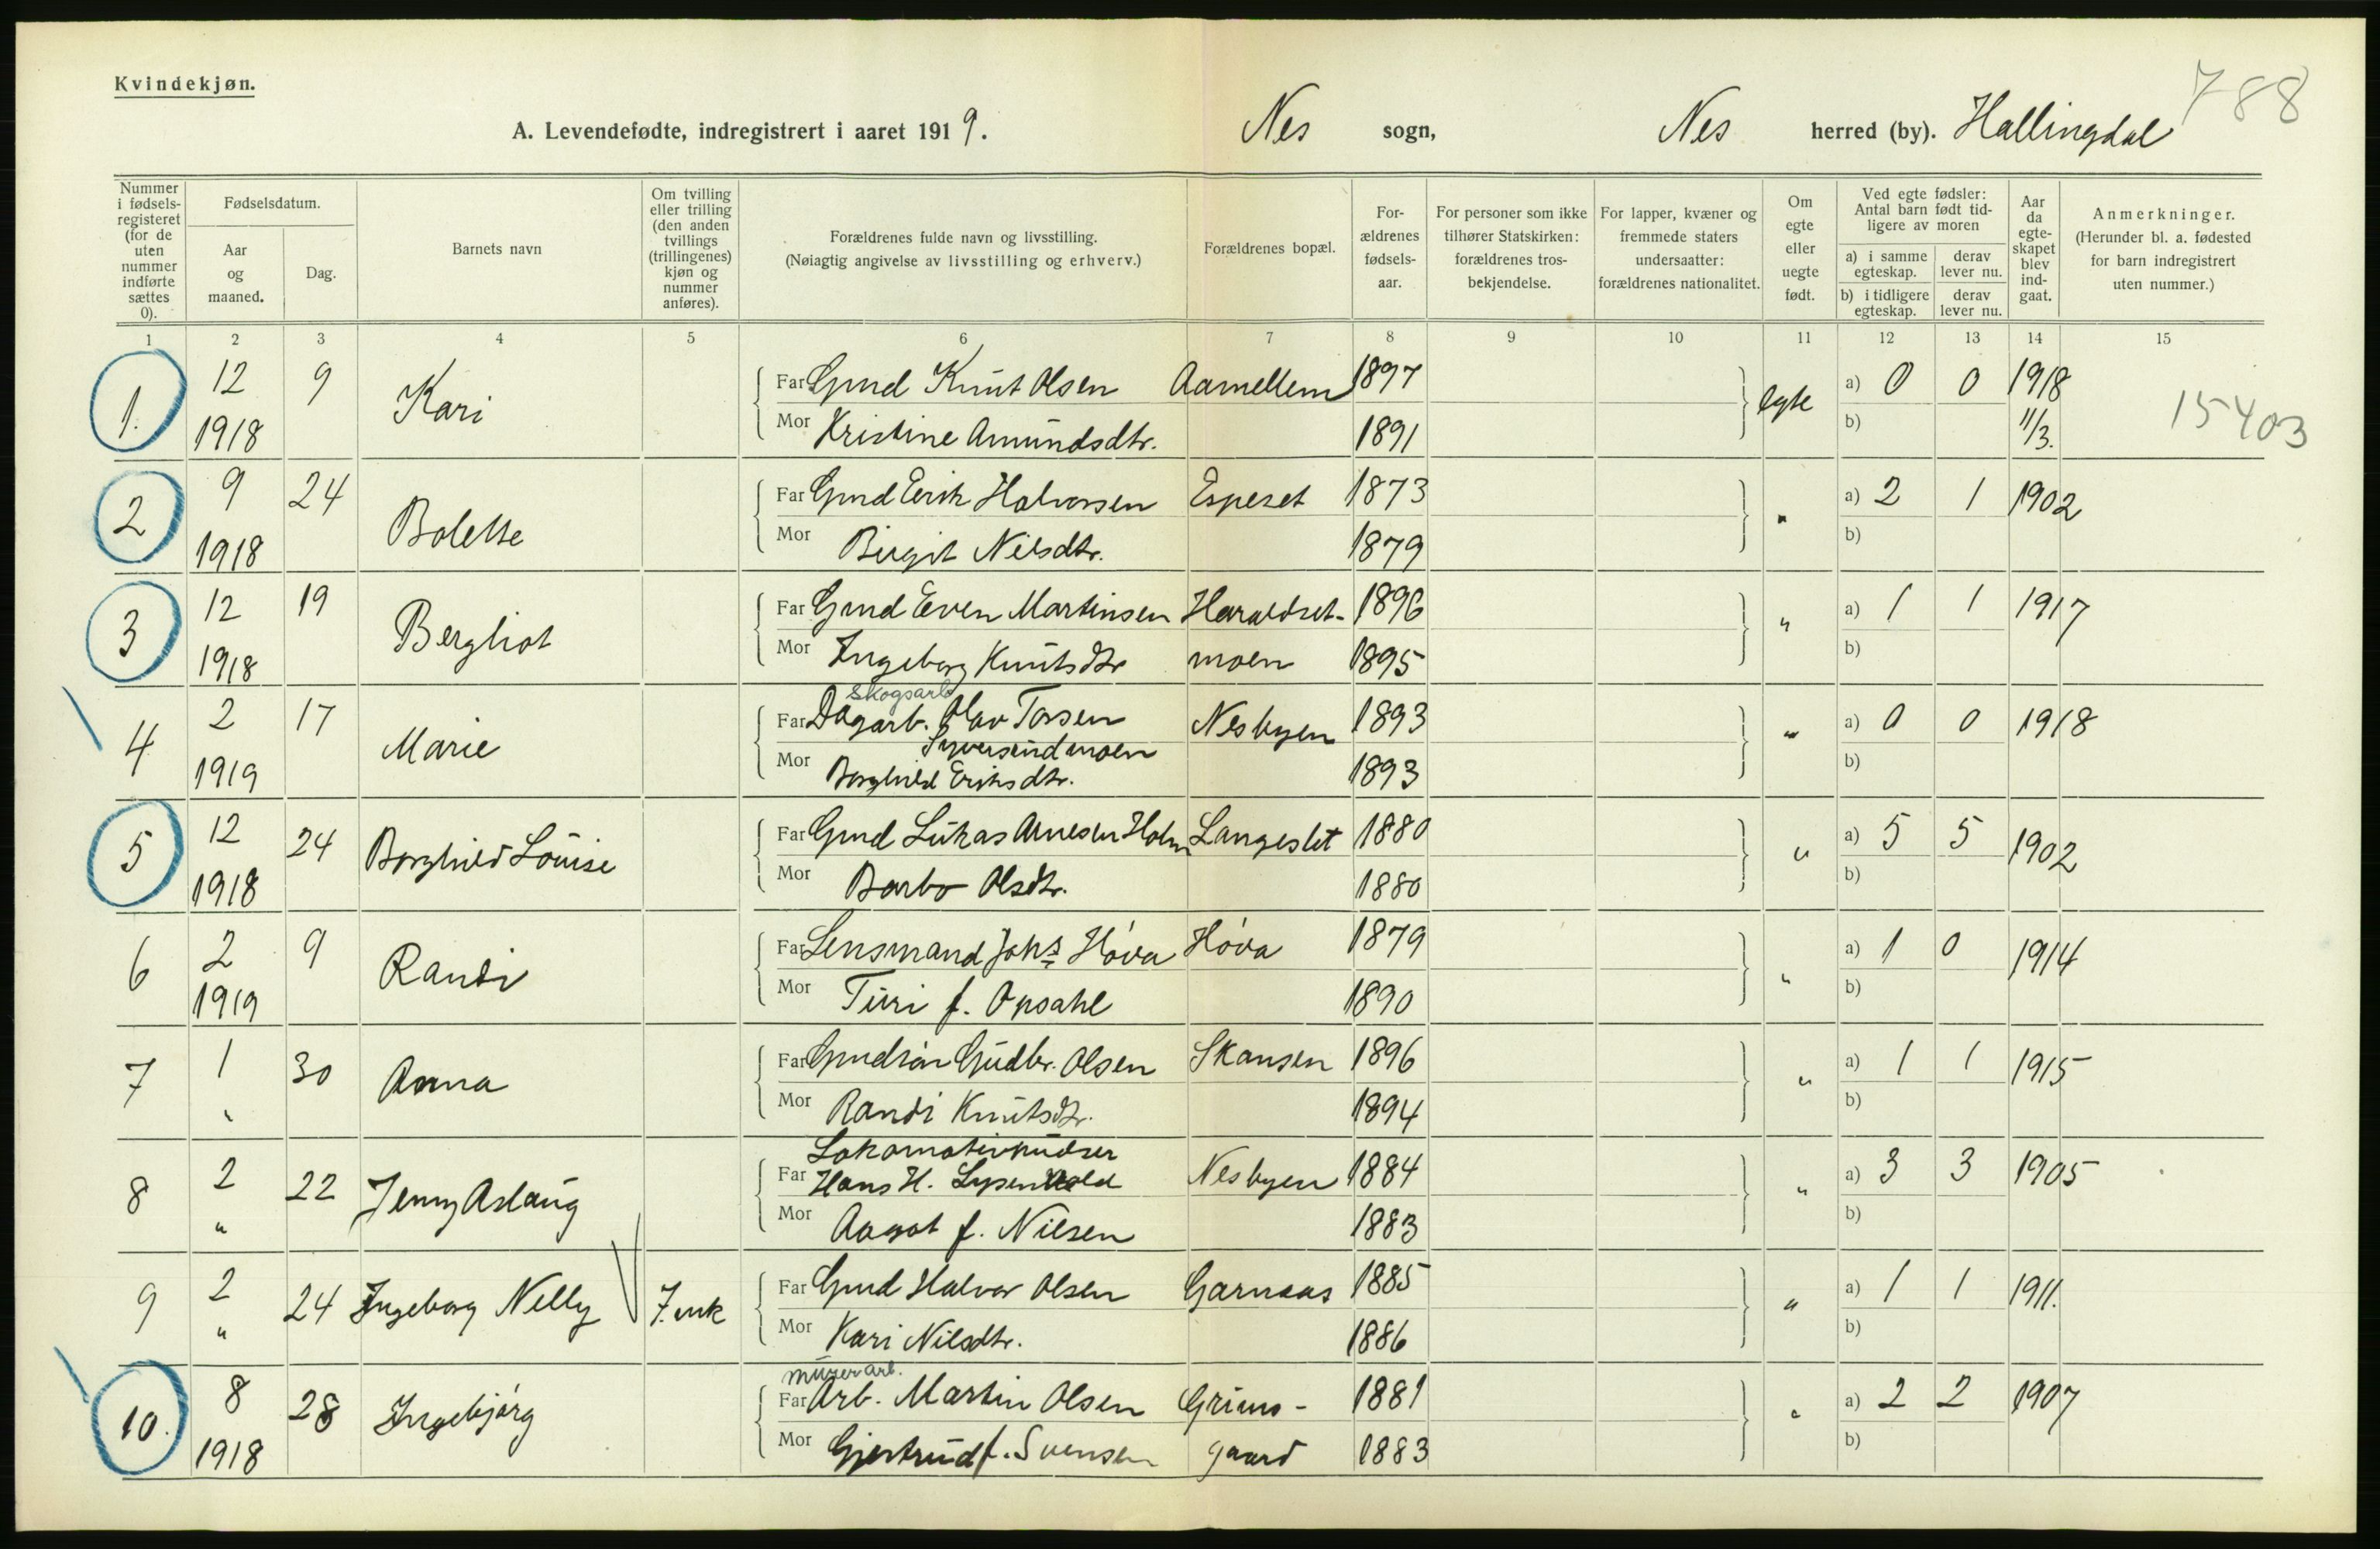 Kvindekjøn.
788
A. Levendefødte, indregistrert i aaret 1919. Nes sogn, Nes herred (by). Hallingdal
Nummer i fødsels-registeret (for de uten nummer indførte sættes 0).
Fødselsdatum.
Aar og maaned.
Dag.
Barnets navn
Om tvilling eller trilling (den anden tvillings (trillingenes) kjøn og nummer anføres).
Forældrenes fulde navn og livsstilling.
(Nøiagtig angivelse av livsstilling og erhverv.)
Forældrenes bopæl.
For-ældrenes fødsels-aar.
For personer som ikke tilhører Statskirken: forældrenes tros-bekjendelse.
For lapper, kvæner og fremmede staters undersaatter: forældrenes nationalitet.
Om egte eller uegte født.
Ved egte fødsler: Antal barn født tid-ligere av moren
a) i samme egteskap.
derav lever nu.
b) i tidligere egteskap.
derav lever nu.
Aar da egte-skapet blev ind-gaat.
Anmerkninger.
(Herunder bl. a. fødested for barn indregistrert uten nummer.)
1 2 3 4 5 6 7 8 9 10 11 12 13 14 15
1. 12 9 Kari Far Gmd Knut Olsen Aamellem 1897 egte a) 0 0 1918
1918 Mor Kristine Amundsdtr. 1891 b) 11/3. 15403
2 9 24 Bolette Far Gmd Erik Halvorsen Espeset 1873 " a) 2 1 1902
1918 Mor Birgit Nilsdtr. 1879 b)
3 12 19 Bergliot Far Gmd Even Martinsen Haraldset- 1896 " a) 1 1 1917
1918 Mor Ingeborg Knutsdtr moen 1895 b)
Skogsarb
4 2 17 Marie Far Dagarb. Olav Torsen Nesbyen 1893 " a) 0 0 1918
Syversrudmoen
1919 Mor Borghild Eriksdtr. 1893 b)
5 12 24 Borghild Louise Far Gmd Lukas Arnesen Holm Langeslet 1880 " a) 5 5 1902
1918 Mor Barbo Olsdtr. 1880 b)
6 2 9 Randi Far Lensmand Johs Hóva Hóva 1879 " a) 1 0 1914
1919 Mor Turi f. Opsahl 1890 b)
7 1 30 Anna Far Gmdsön Gudbr. Olsen Skansen 1896 " a) 1 1 1915
" Mor Randi Knutsdtr. 1894 b)
Lokomotivpudser
8 2 22 Jenny Aslaug Far Hans H. Nesbyen 1884 " a) 3 3 1905
" Mor Aagot f. Nilsen 1883 b)
9 2 24 Ingeborg Nelly 7. mk Far Gmd Halvor Olsen Garnaas 1885 " a) 1 1 1911.
" Mor Kari Nilsdtr. 1886 b)
murerarb.
10. 8 28 Ingebjórg Far Arb. Martin Olsen Grims- 1881 " a) 2 2 1907
1918 Mor Gjertrud f. Svensen gaard 1883 b)